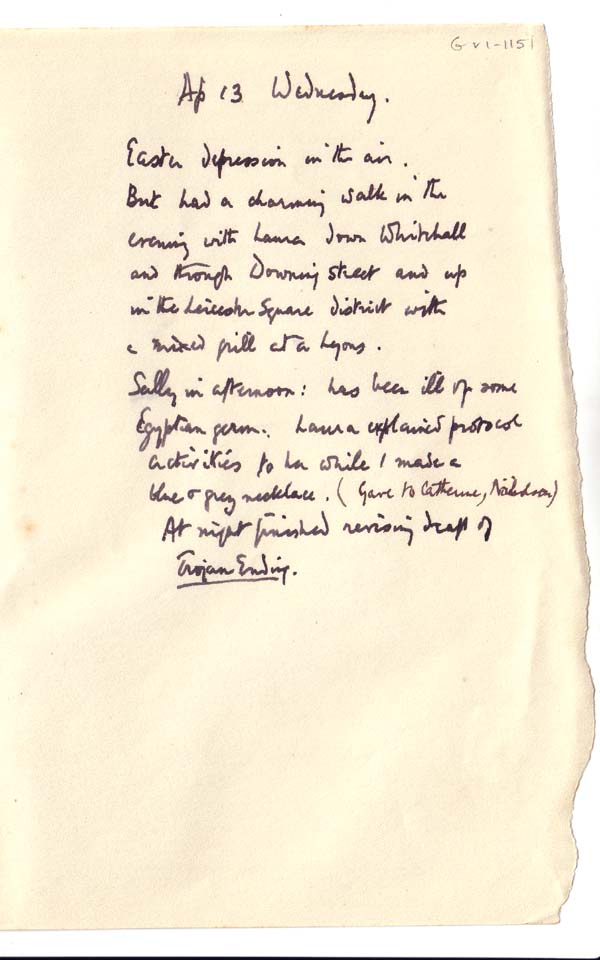 G v 1-1151
Ap 13 Wednesday.
Easter depression in the air.
But had a charming walk in the
evening with Laura down Whitehall
and through Downing Street and up
in the Leicester Square district with
a mixed grill at a Lyons.
Sally in afternoon: has been ill of some
Egyptian germ. Laura explained protocol
activities to her while I made a
blue & grey necklace. (Gave to Catherine,
At night finished revising draft of
Trojan Ending.